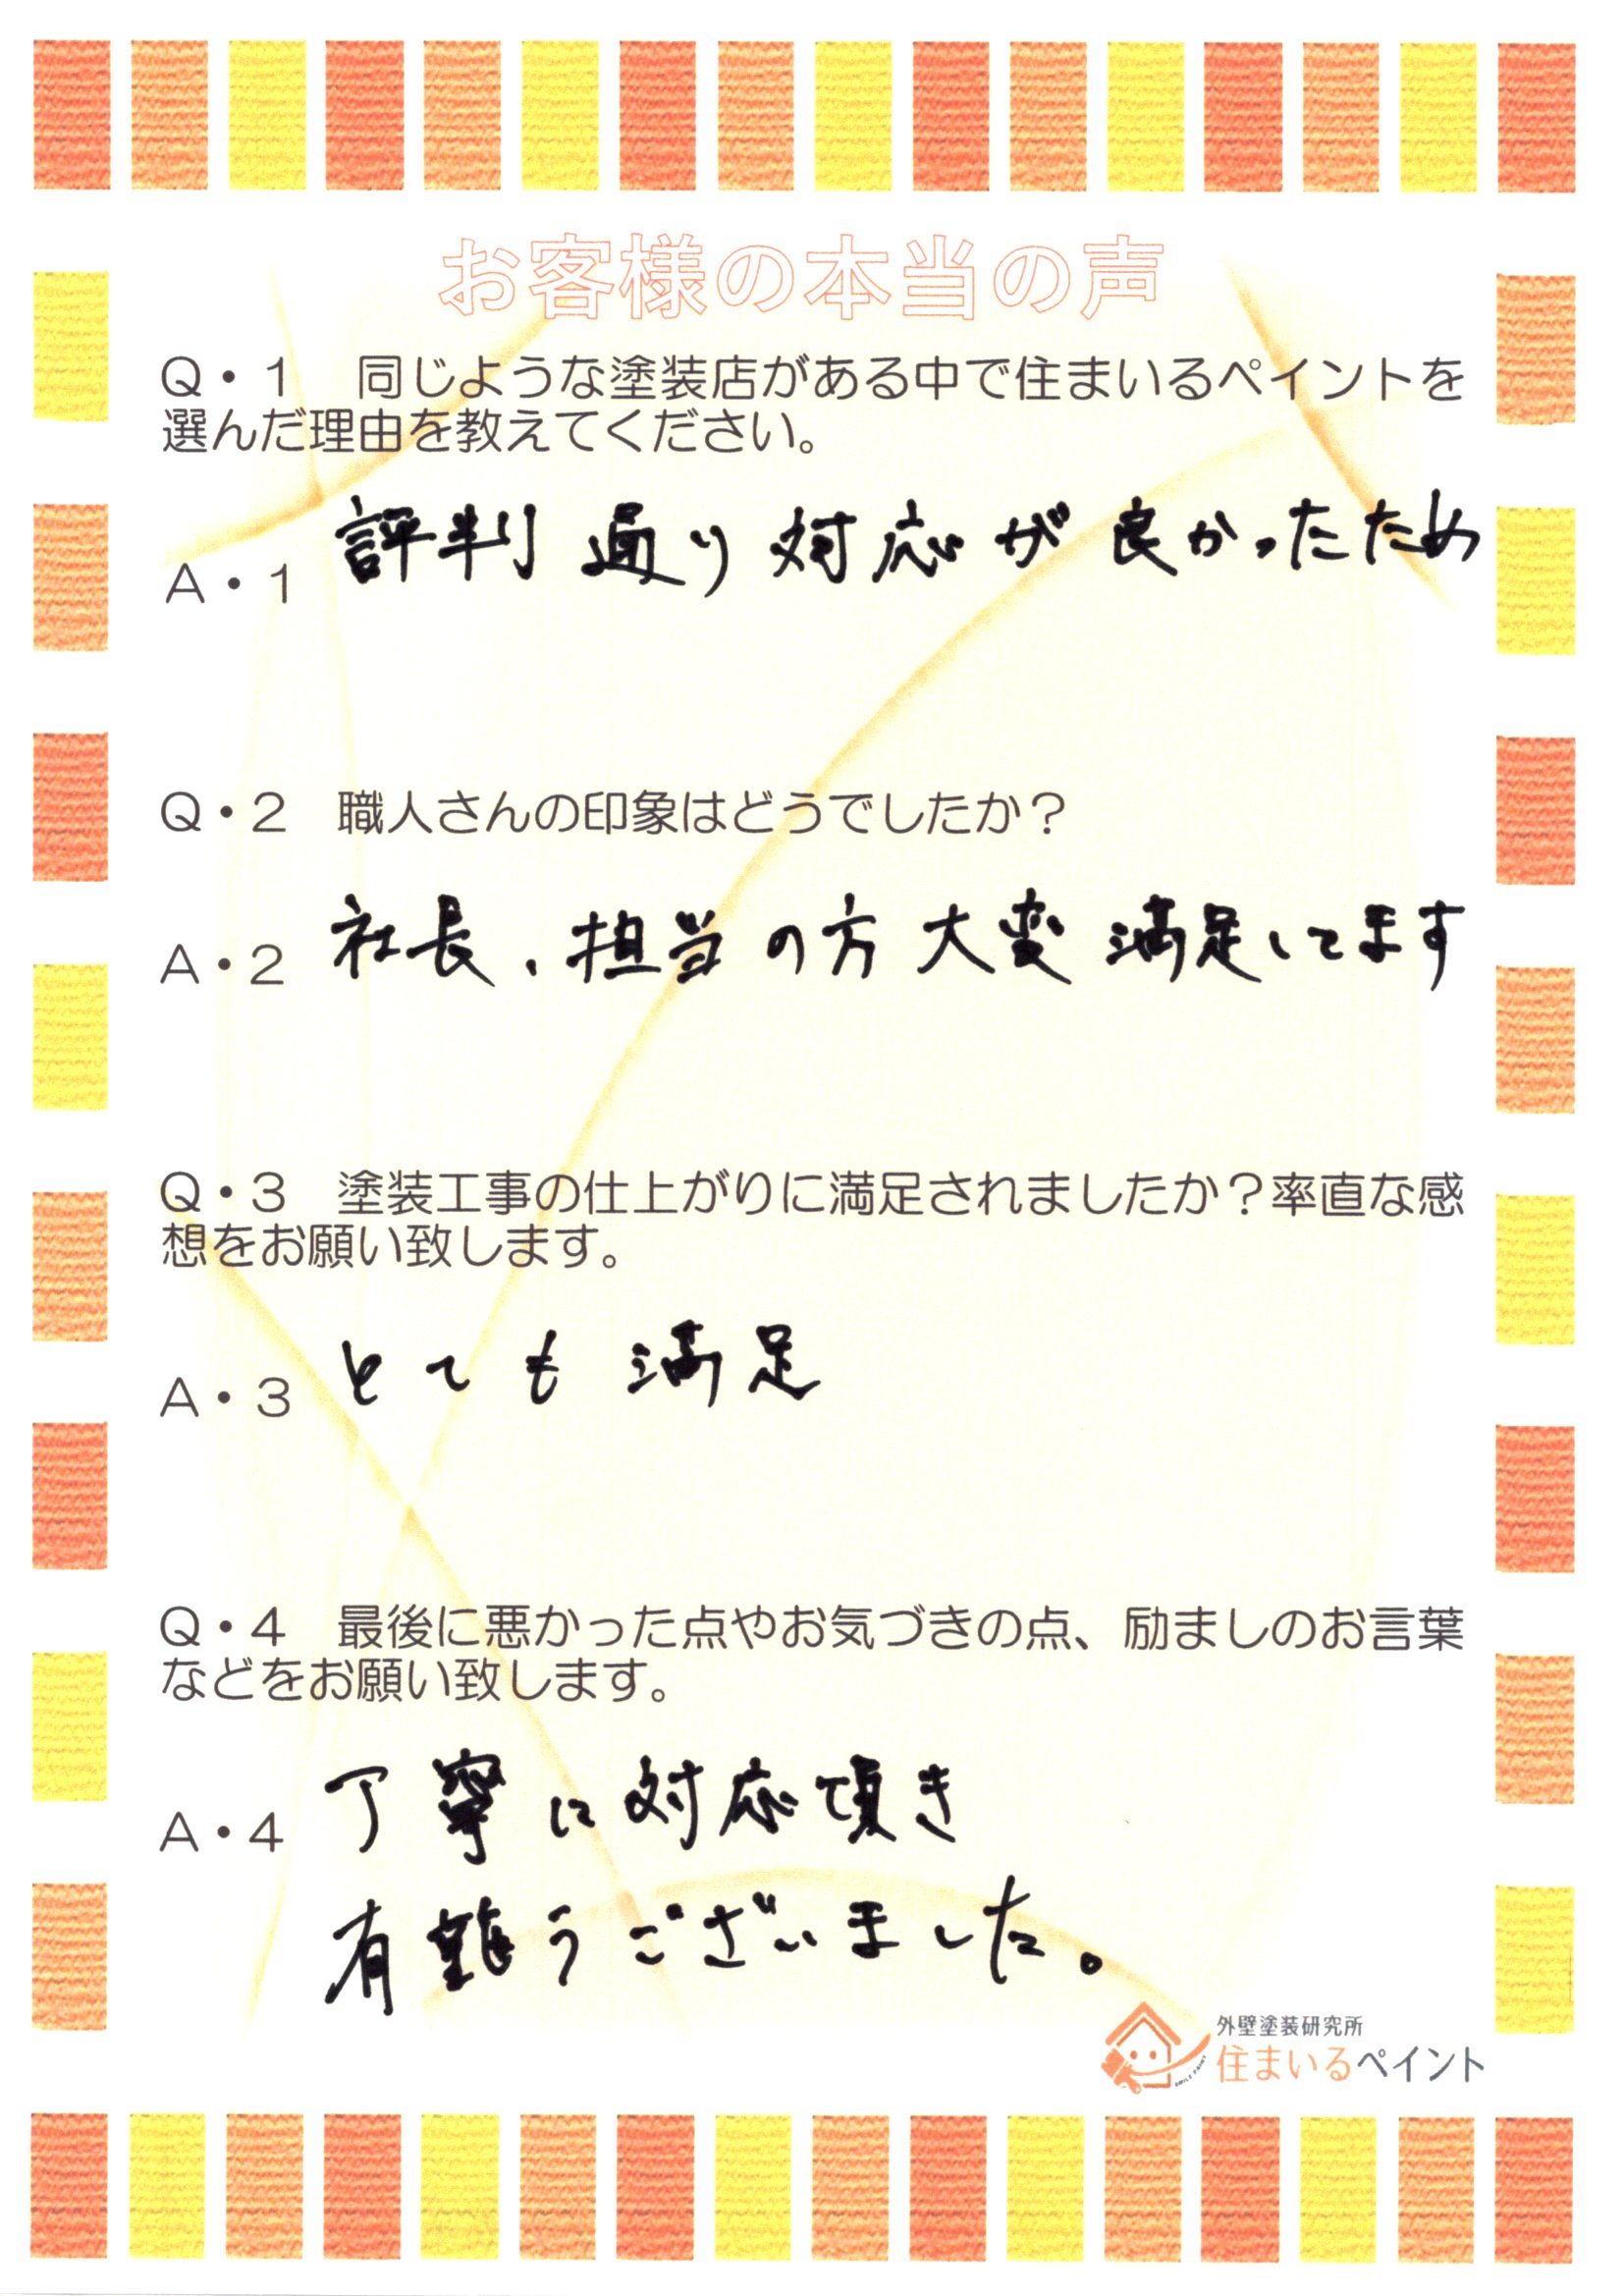 お客様の本当の声
Q・1　同じような塗装店がある中で住まいるペイントを
選んだ理由を教えてください。
A・1 評判通り対応が良かったため
Q・2　職人さんの印象はどうでしたか？
A・2 社長、担当の方大変満足してます
Q・3　塗装工事の仕上がりに満足されましたか？率直な感
想をお願い致します。
A・3 とても満足
Q・4　最後に悪かった点やお気づきの点、励ましのお言葉
などをお願い致します。
A・4 丁寧に対応頂き
有難うございました。
外壁塗装研究所
住まいるペイント
SMILE PAINT